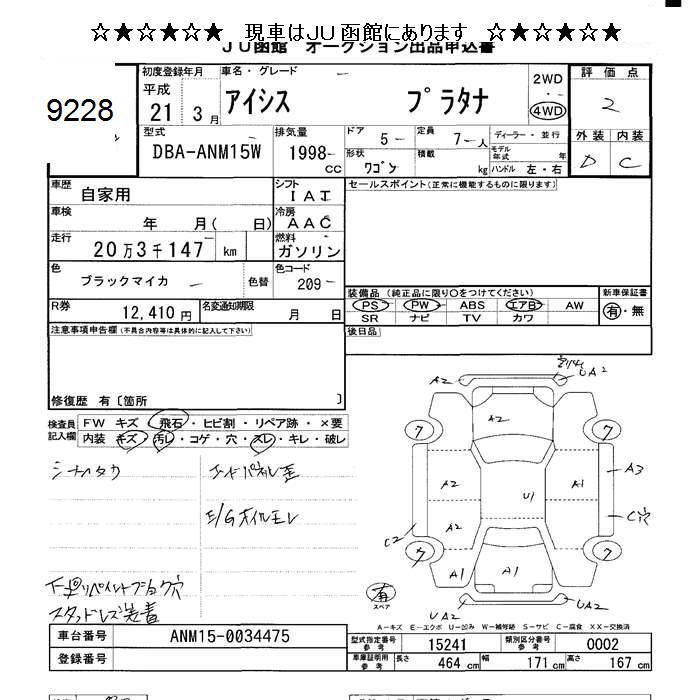 ☆★☆★☆★　現車はＪＵ函館にあります　☆★☆★☆★
ＪＵ函館　オークション出品申込書
9228
初度登録年月
平成
21　3月
車名・グレード
アイシス　プラタナ
2WD
・
4WD
評価点
2
型式
DBA-ANM15W
排気量
1998 cc
ドア
5
定員
7人
ディーラー・並行
モデル年式　年
形状
ワゴン
積載
kg
ハンドル　左・右
外装　内装
D　C
車歴
自家用
シフト
IAT
セールスポイント(正常に機能するものに限ります)
車検
年　月(　日)
冷房
AAC
走行
20万3千147　km
燃料
ガソリン
色
ブラックマイカ
色替
色コード
209
R券
12,410円
名変通知期限
月　日
装備品（純正品に限り○をつけてください）
PS　PW　ABS　エアB　AW
SR　ナビ　TV　カワ
新車保証書
有・無
注意事項申告欄(不具合内容等は具体的に記入して下さい)
後日品
修復歴　有〔箇所　〕
検査員記入欄
FW　キズ・飛石・ヒビ割・リペア跡・×要
内装　キズ・汚レ・コゲ・穴・スレ・キレ・破レ
E/Gオイルモレ
スタッドレス装着
A2　UA2
ワ　A2　ワ
A3
A2　U1　A1
A2
C穴
C2
ワ　ワ
A1　A1
有
スペア
UA2　UA2
A－キズ　E－エクボ　U－凹み　W－補修跡　S－サビ　C－腐食　XX－交換済
車台番号
ANM15-0034475
登録番号
型式指定番号
参考
15241
類別区分番号
参考
0002
車庫証明用
参考
長さ
464 cm
幅
171 cm
高さ
167 cm